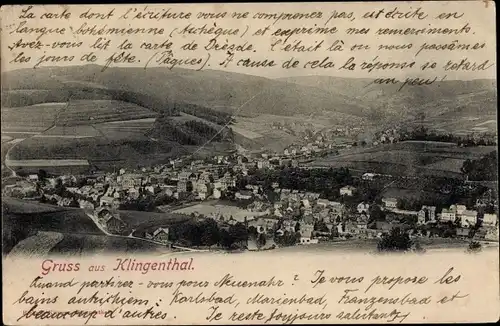 La carte dont l'écriture vous ne comprenez pas, est écrite en
langue bohémienne (tschéque) et exprime mes remerciments.
Avez-vous lit la carte de Dresde. C'était là ou nous passâmes
les jours de fête. (Pâques). Il cause de cela la réponse se retard
un peu!
Gruss aus Klingenthal.
Quand partirez-vous pour Neuenahr? Je vous propose les
bains autrichiens: Karlsbad, Marienbad, Franzensbad et
beaucoup d'autres. Je reste toujours salutant